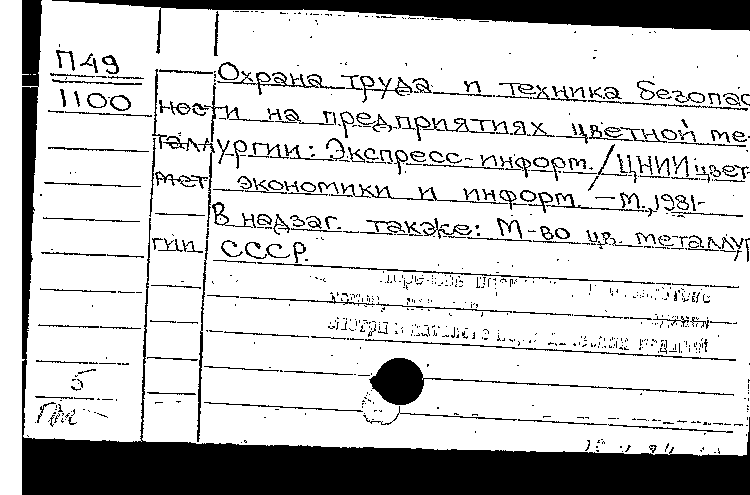 П49
1100
Охрана труда и техника безопас
ности на предприятиях цветной ме-
таллургии: Экспресс-информ. / ЦНИИцвет-
мет экономики и информ. — М., 1981-
В надзаг. также: М-во цв. металлур
гии СССР.
5